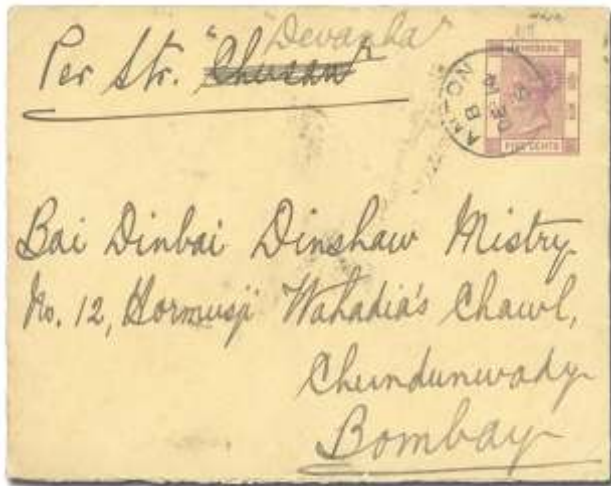 "Devanha"
Per Str. "Chusan"
HONG KONG
CANTON
B
DE
FIVE CENTS
Bai Dinbai Dinshaw Mistry
No. 12, Hormusji Wahadia's Chawl,
Chundunwady
Bombay